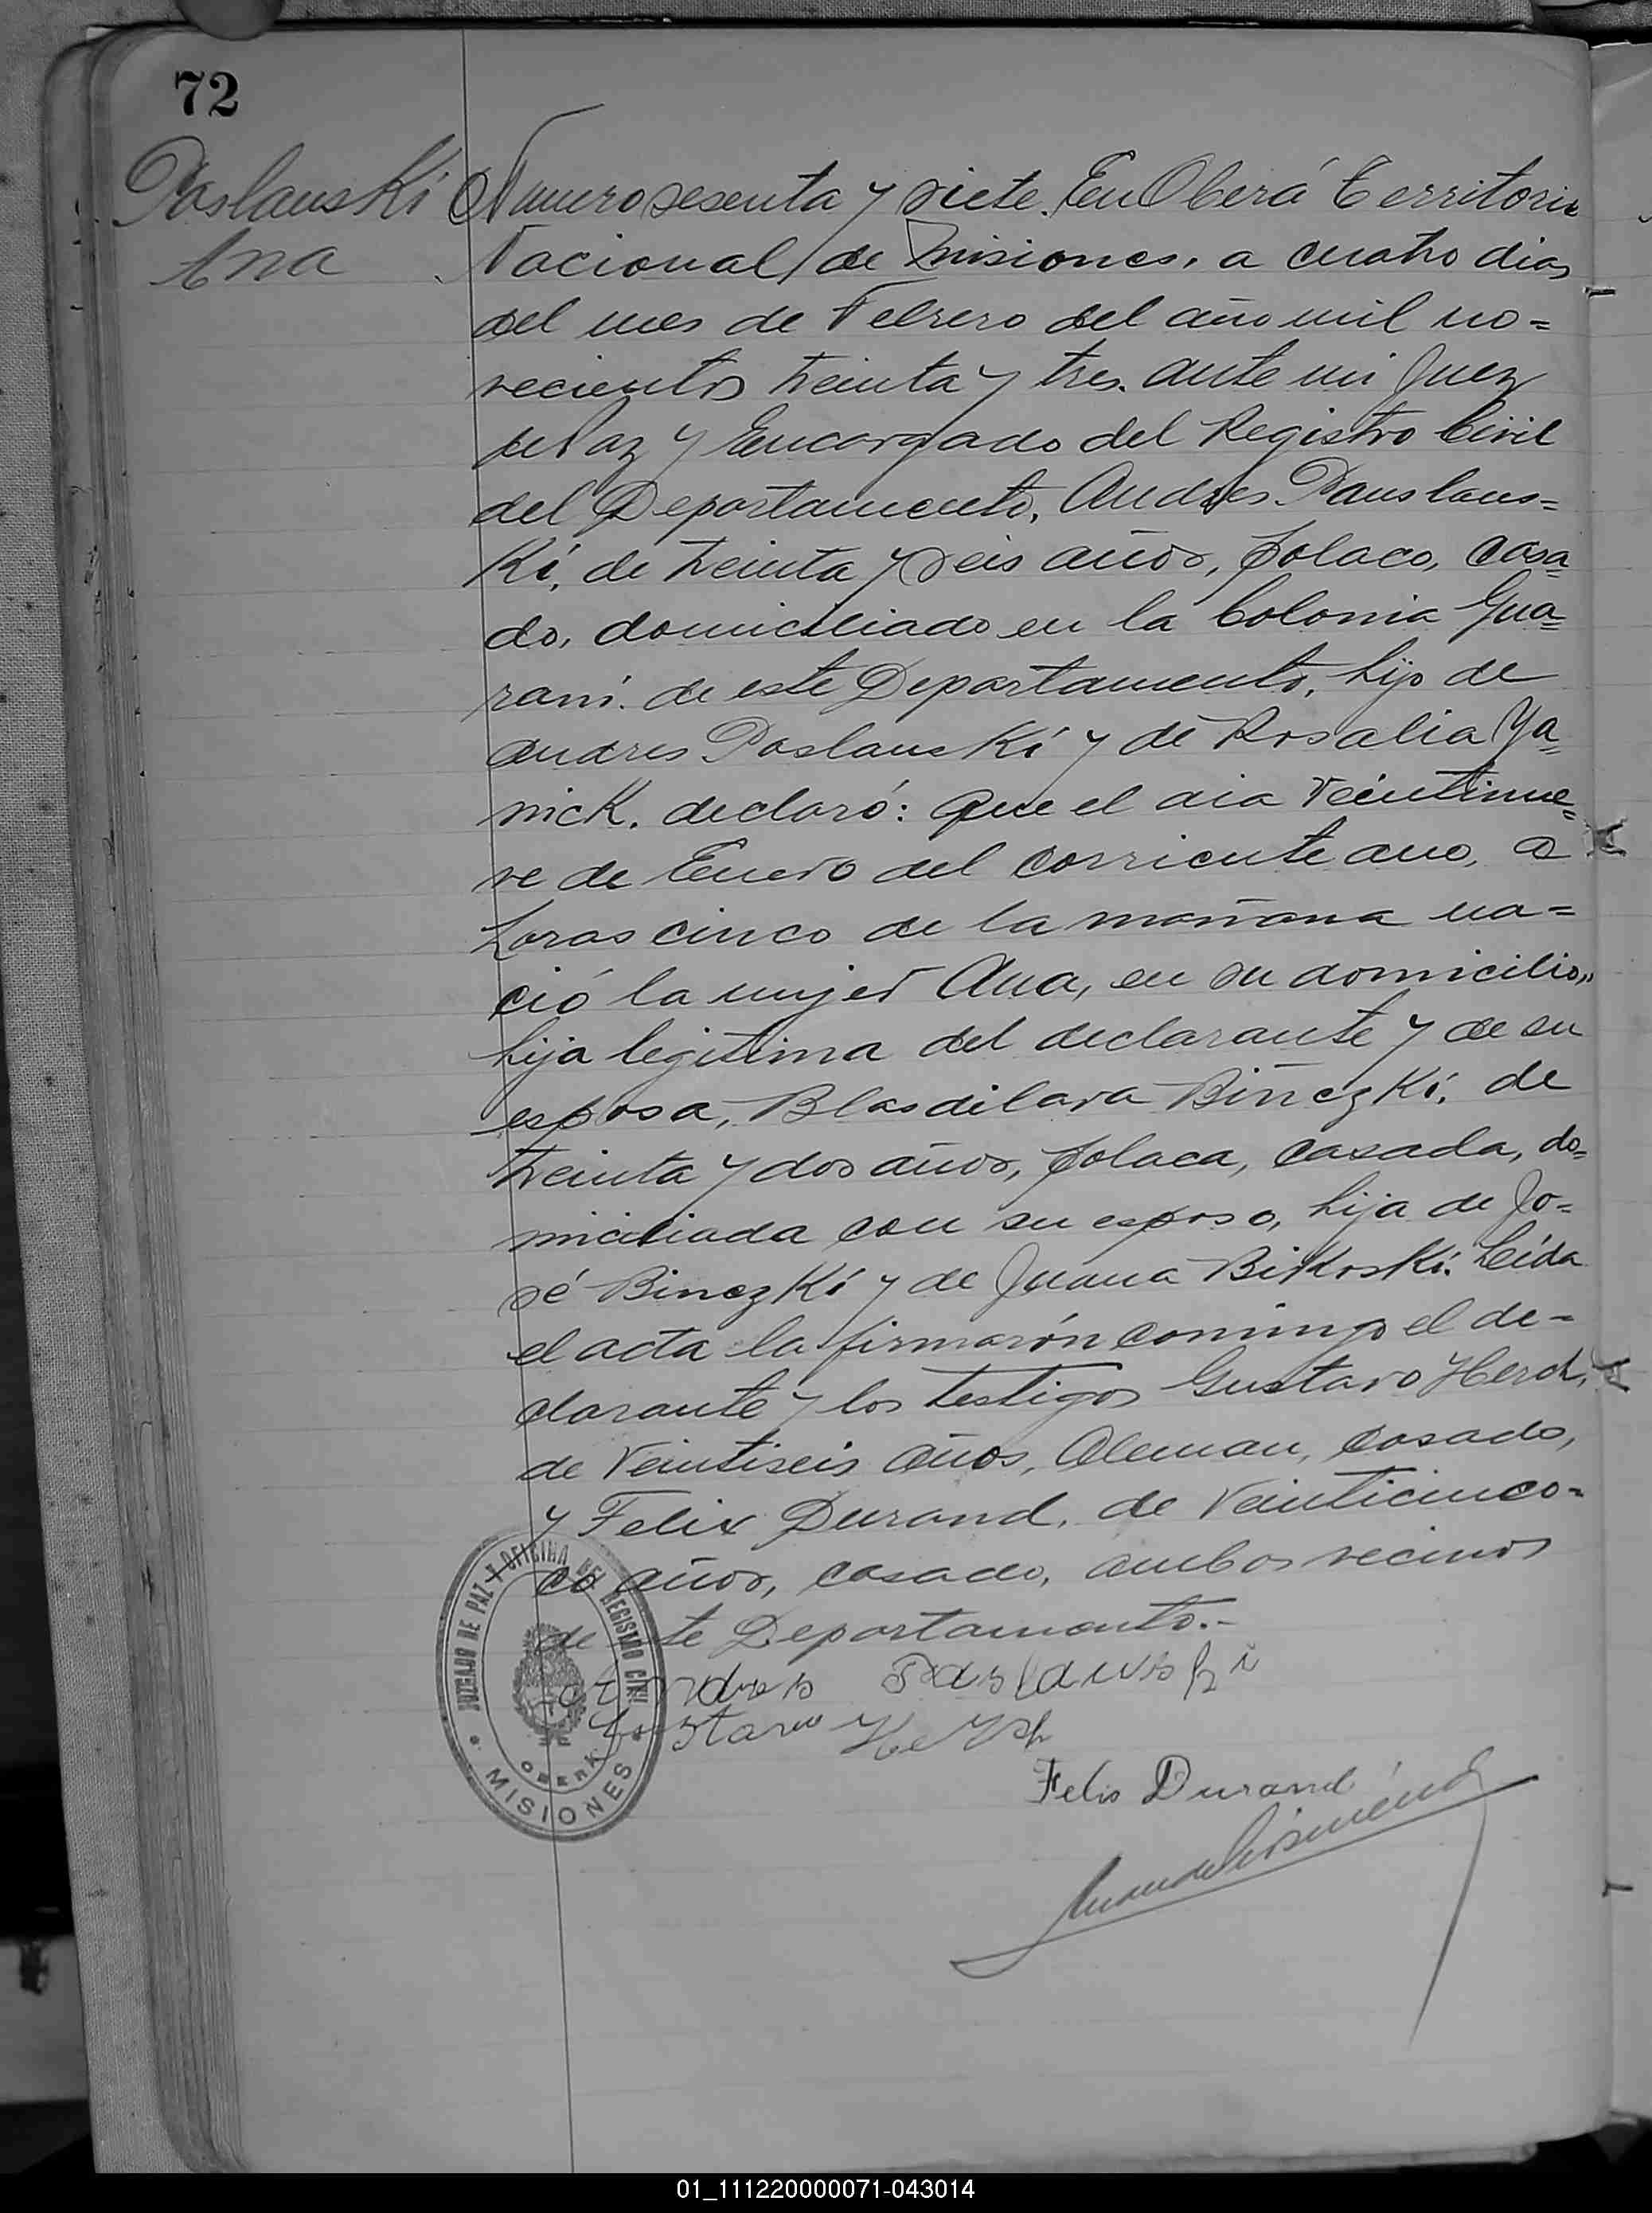 72
Poslauski
Ana
Numero sesenta y siete. En Oberá Territorio
Nacional de Misiones, a cuatro dias
del mes de Febrero del año mil no=
vecientos treinta y tres. ante mi Juez
de Paz y Encargado del Registro Civil
del Departamento, Andres Pauslaus=
Ki, de treinta y seis años, polaco, casa=
do, domiciliado en la Colonia Gua=
raní. de este Departamento, hijo de
Andres Poslauski y de Rosalia Ya=
nick. declaró: Que el dia veintinue=
ve de Enero del corriente ano, a
horas cinco de la mañana na=
ció la mujer Ana, en su domicilio,,
hija legitima del declarante y de su
esposa, Blasdilava Biñczki, de
treinta y dos años, polaca, casada, do=
miciliada con su esposo, hija de Jo=
sé Binczki y de Juana Bikoski. Leída
el acta la firmarón conmigo el de-
clarante y los testigos Gustavo Herch,
de veintiseis años, Aleman, casado,
y Felix Durand, de veinticinco-
co años, casado, ambos vecinos
de este Departamento.-
Andres Paslauski
Gustavo Hersh
Felis Durand
JUZGADO DE PAZ Y OFICINA DEL REGISTRO CIVIL
OBERÁ
MISIONES
01_111220000071-043014